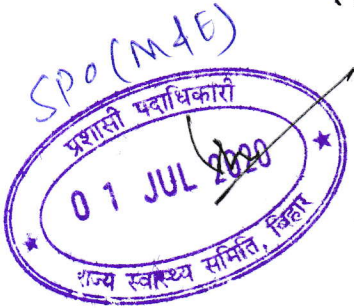 SPO (M&E)
प्रशासी पदाधिकारी
01 JUL 2020
राज्य स्वास्थ्य समिति, बिहार